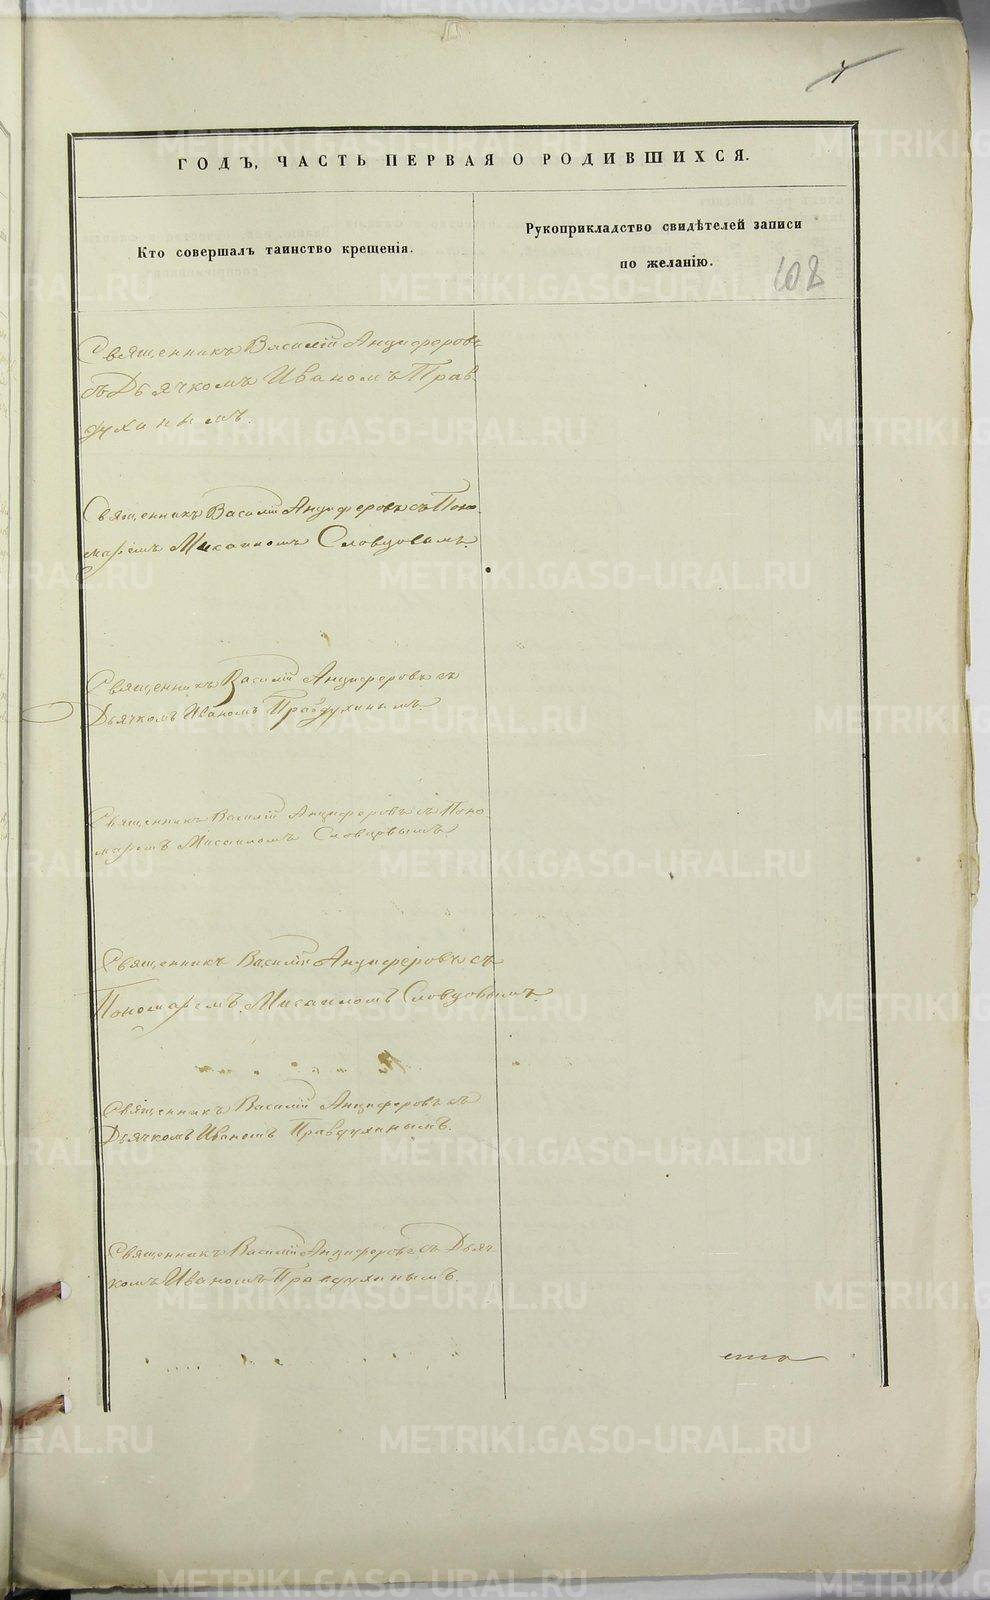 ГОДЪ, ЧАСТЬ ПЕРВАЯ О РОДИВШИХСЯ.
Кто совершалъ таинство крещенія.
Рукоприкладство свидѣтелей записи
по желанію.
108
Священникъ Василій Анциферовъ
съ Дьячкомъ Иваномъ Прав
духинымъ.
Священникъ Василій Анциферовъ съ Поно
маремъ Мисаиломъ Словцовымъ.
Священникъ Василій Анциферовъ съ
Дьячкомъ Иваномъ Правдухинымъ.
Священникъ Василій Анциферовъ съ Поно
маремъ Мисаиломъ Словцовымъ
Священникъ Василій Анциферовъ съ
Пономаремъ Мисаиломъ Словцовымъ.
Священникъ Василій Анциферовъ съ
Дьячкомъ Иваномъ Правдухинымъ.
Священникъ Василій Анциферовъ съ Дьяч
комъ Иваномъ Правдухинымъ.
METRIKI.GASO-URAL.RU